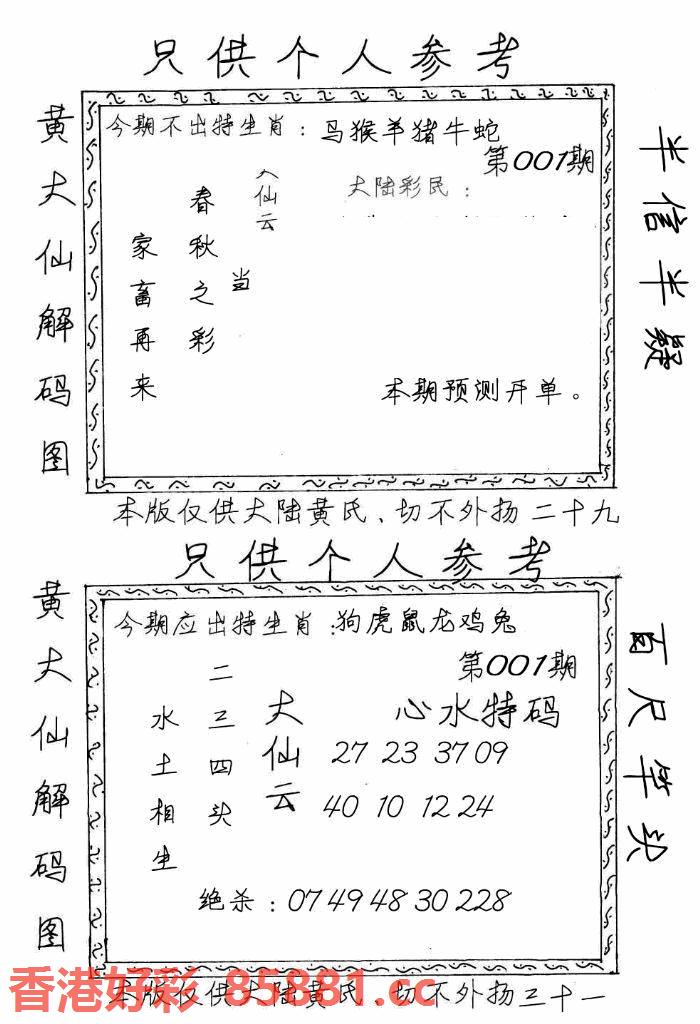 只供个人参考
黄大仙解码图
今期不出特生肖：马猴羊猪牛蛇
第001期
大陆彩民：
仙云
当
春秋之彩
家畜再来
本期预测开单。
半信半疑
本版仅供大陆黄氏、切不外扬二十九
只供个人参考
黄大仙解码图
今期应出特生肖：狗虎鼠龙鸡兔
第001期
心水特码
27 23 37 09
40 10 12 24
大仙云
二三四头
水土相生
绝杀：07 49 48 30 228
百尺竿头
本版仅供大陆黄氏、切不外扬三十一
香港好彩 85881.cc